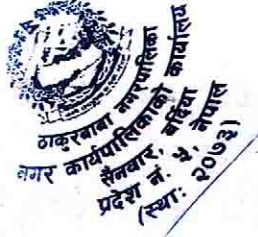 ठाकुरबाबा नगरपालिका
नगर कार्यपालिकाको कार्यालय
सैनवार, बर्दिया
प्रदेश नं. ५, नेपाल
(स्था: २०७३)